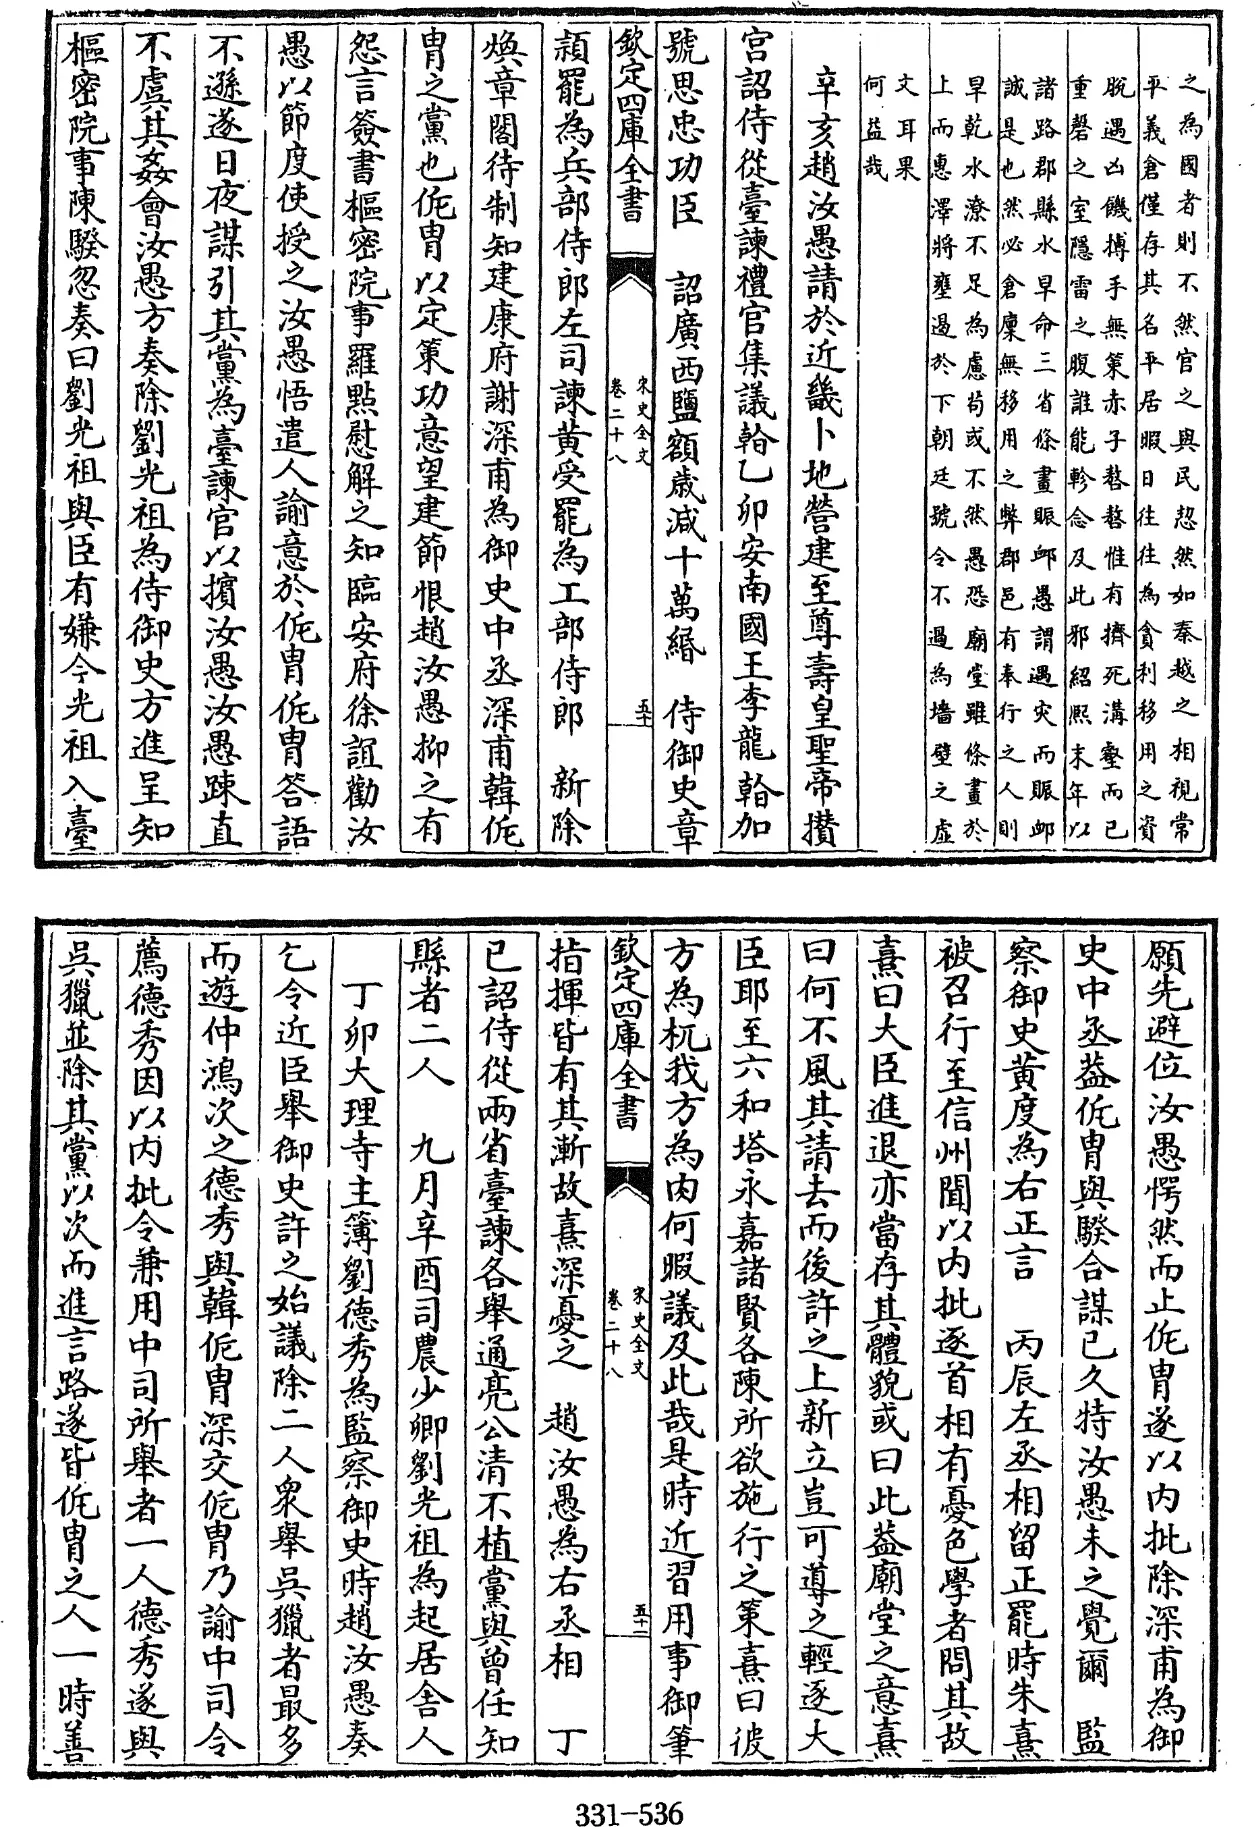 之為國者則不然官之與民恝然如秦越之相視常
平義倉僅存其名平居暇日往往為貪利移用之資
脫遇凶饑搏手無策赤子嗸嗸惟有擠死溝壑而已
重罄之室隱雷之腹誰能軫念及此耶紹熙末年以
諸路郡縣水旱命三省條畫賑䘏愚謂遇灾而賑䘏
誠是也然必倉廩無移用之弊郡邑有奉行之人則
旱乾水潦不足為慮苟或不然愚恐廟堂雖條畫於
上而惠澤將壅遏於下朝廷號令不過為墻壁之虚
文耳果
何益哉
辛亥趙汝愚請於近畿卜地營建至尊壽皇聖帝攢
宫詔侍從臺諫禮官集議乾乙卯安南國王李龍翰加
號思忠功臣 詔廣西鹽額歲減十萬緡 侍御史章
欽定四庫全書 宋史全文 卷二十八 五十
穎罷為兵部侍郎左司諫黄受罷為工部侍郎 新除
煥章閣待制知建康府謝深甫為御史中丞深甫韓侂
胄之黨也侂胄以定策功意望建節恨趙汝愚抑之有
怨言簽書樞密院事羅點慰解之知臨安府徐誼勸汝
愚以節度使授之汝愚悟遣人諭意於侂胄侂胄答語
不遜遂日夜謀引其黨為臺諫官以擯汝愚汝愚踈直
不虞其姦會汝愚方奏除劉光祖為侍御史方進呈知
樞密院事陳騤忽奏曰劉光祖與臣有嫌今光祖入臺
願先避位汝愚愕然而止侂胄遂以内批除深甫為御
史中丞葢侂胄與騤合謀已久特汝愚未之覺爾 監
察御史黄度為右正言 丙辰左丞相留正罷時朱熹
被召行至信州聞以内批逐首相有憂色學者問其故
熹曰大臣進退亦當存其體貌或曰此葢廟堂之意熹
曰何不風其請去而後許之上新立豈可導之輕逐大
臣耶至六和塔永嘉諸賢各陳所欲施行之策熹曰彼
方為机我方為肉何暇議及此哉是時近習用事御筆
欽定四庫全書 宋史全文 卷二十八 五十一
指揮皆有其漸故熹深憂之 趙汝愚為右丞相 丁
已詔侍從兩省臺諫各舉通亮公清不植黨與曾任知
縣者二人 九月辛酉司農少卿劉光祖為起居舍人
丁卯大理寺主簿劉德秀為監察御史時趙汝愚奏
乞令近臣舉御史許之始議除二人衆舉吳獵者最多
而遊仲鴻次之德秀與韓侂胄深交侂胄乃諭中司令
薦德秀因以内批令兼用中司所舉者一人德秀遂與
吳獵並除其黨以次而進言路遂皆侂胄之人一時善
331-536